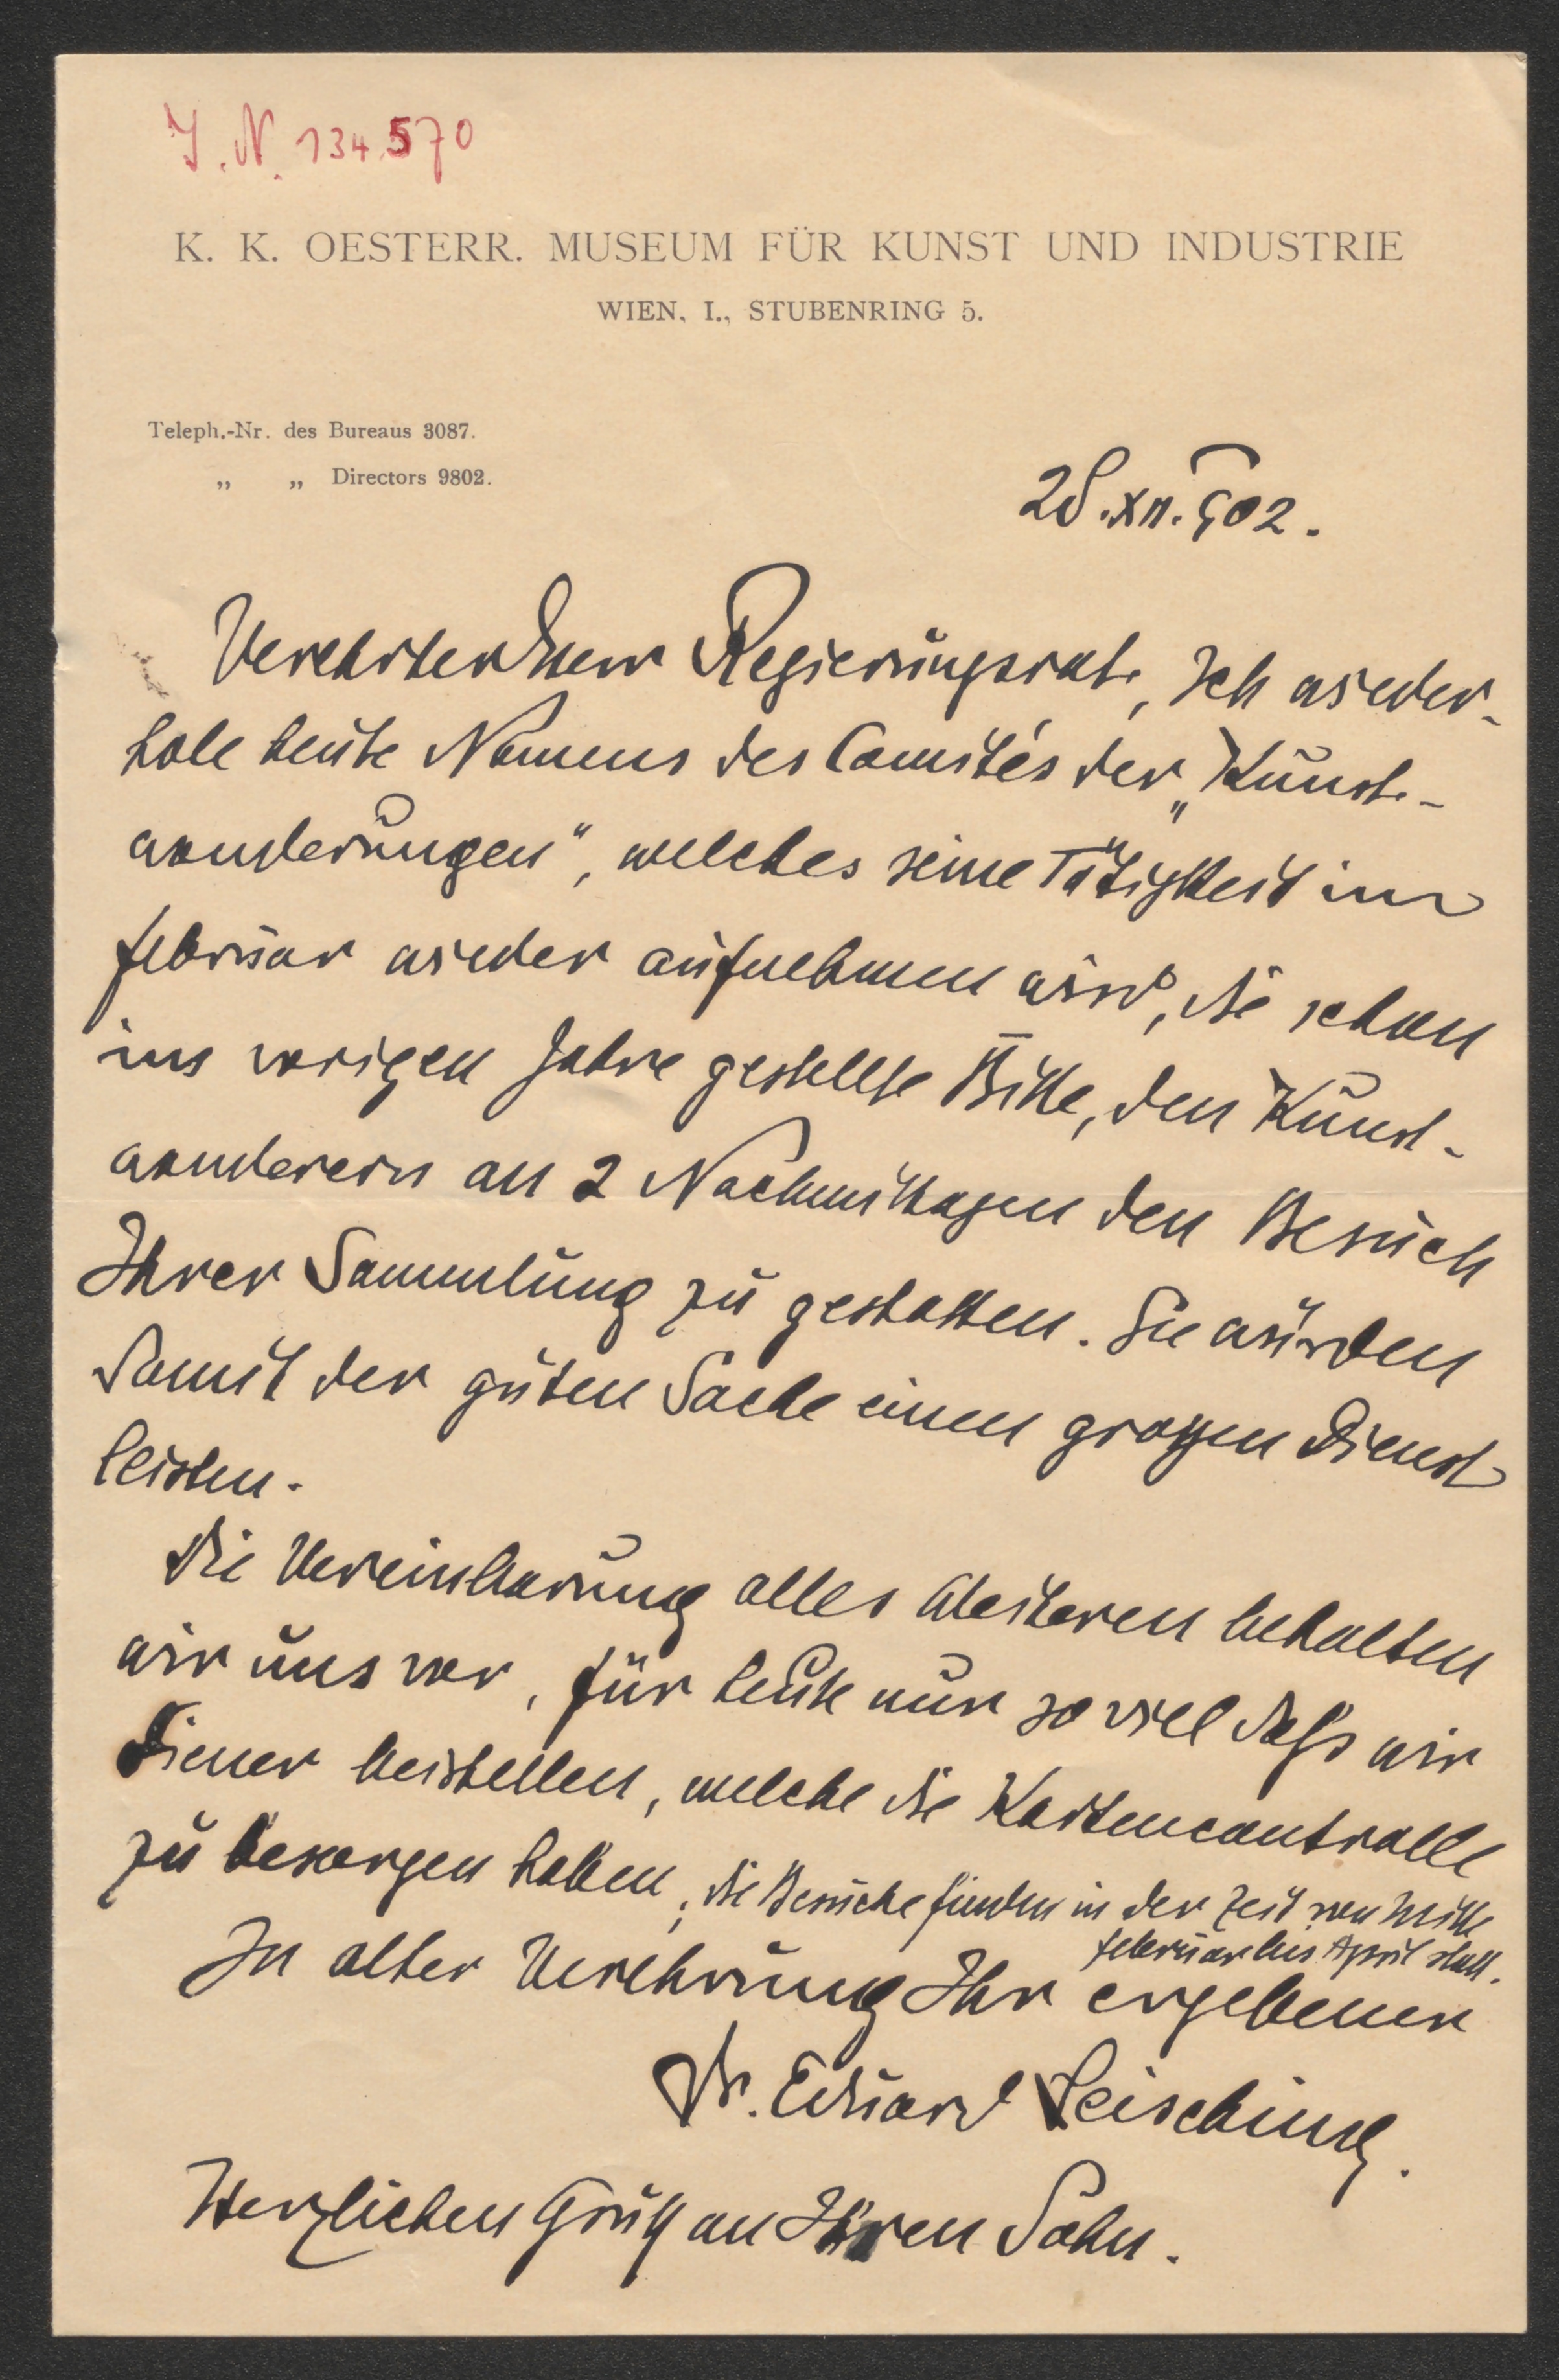 J. N. 134.570
K. K. OESTERR. MUSEUM FÜR KUNST UND INDUSTRIE
WIEN, I., STUBENRING 5.
Teleph.-Nr. des Bureaus 3087.
„ „ Directors 9802.
28.XII.902.
Verehrter Herr Regierungsrat, Ich wieder-
hole heute Namens des Comités der „Kunst-
wanderungen", welches seine Tätigkeit im
Februar wieder aufnehmen wird, die schon
im vorigen Jahre gestellte Bitte, den Kunst-
wanderern an 2 Nachmittagen den Besuch
Ihrer Sammlung zu gestatten. Sie würden
damit der guten Sache einen großen Dienst
leisten.
Die Vereinbarung alles Weiteren behalten
wir uns vor, für heute nur so viel daß wir
Diener beistellen, welche die Kartencontrolle
zu besorgen haben; die Besuche finden in der Zeit von Mitte
Februar bis April statt.
In alter Verehrung Ihr ergebener
Dr. Eduard Leisching.
Herzlichen Gruß an Ihren Sohn.